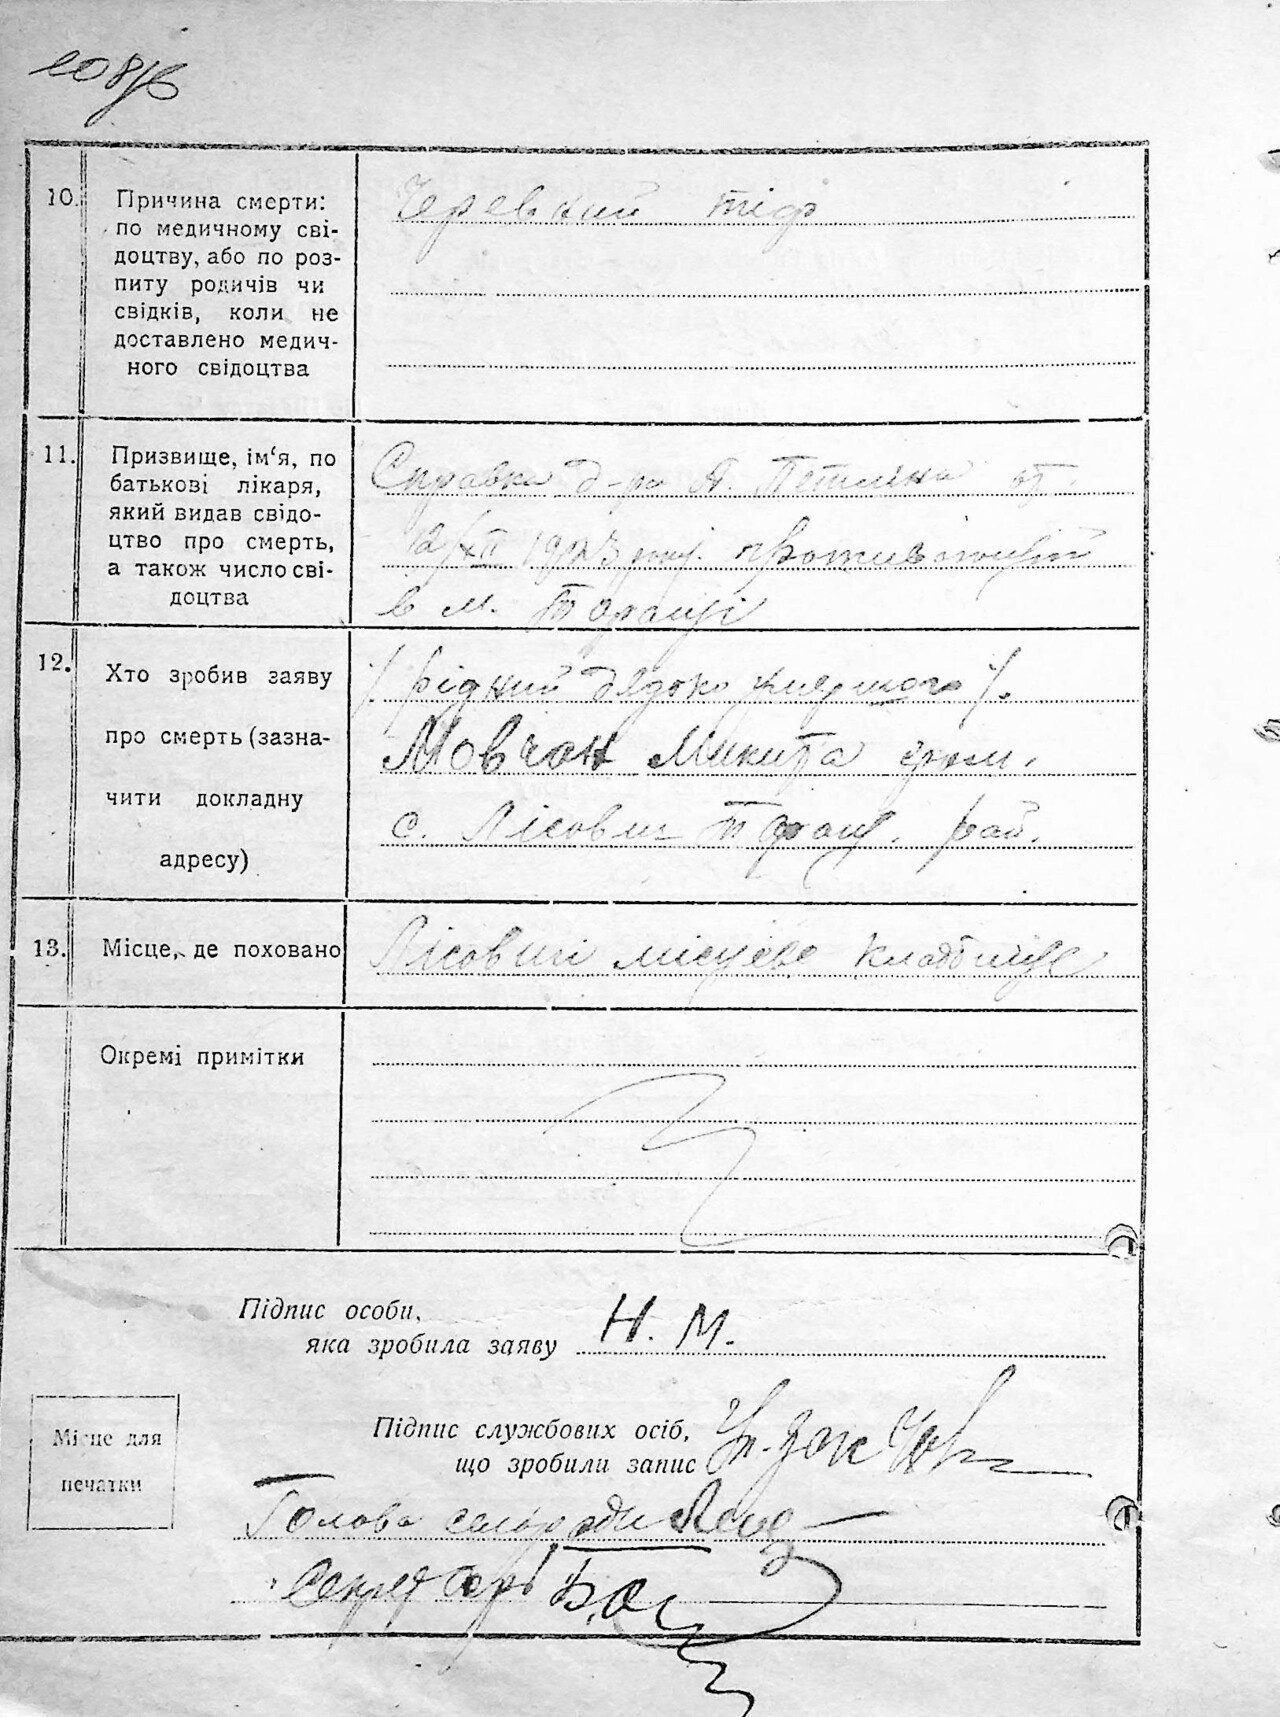 108/б
10. Причина смерти:
по медичному сві-
доцтву, або по роз-
питу родичів чи
свідків, коли не
доставлено медич-
ного свідоцтва
Черевний тіф
11. Призвище, ім'я, по
батькові лікаря,
який видав свідо-
цтво про смерть,
а також число сві-
доцтва
Справка д-ра А. от
2/XII 1923 року.
в м. Таращі
12. Хто зробив заяву
про смерть (зазна-
чити докладну
адресу)
/. рідний дядько умершого /.
Мовчан Микита гром.
с. Лісович Таращ. рай.
13. Місце, де поховано
Лісовичі місцеве кладбище
Окремі примітки
Підпис особи,
яка зробила заяву Н. М.
Підпис службових осіб,
що зробили запис
Місце для
печатки
Голова сельради
Секретарь